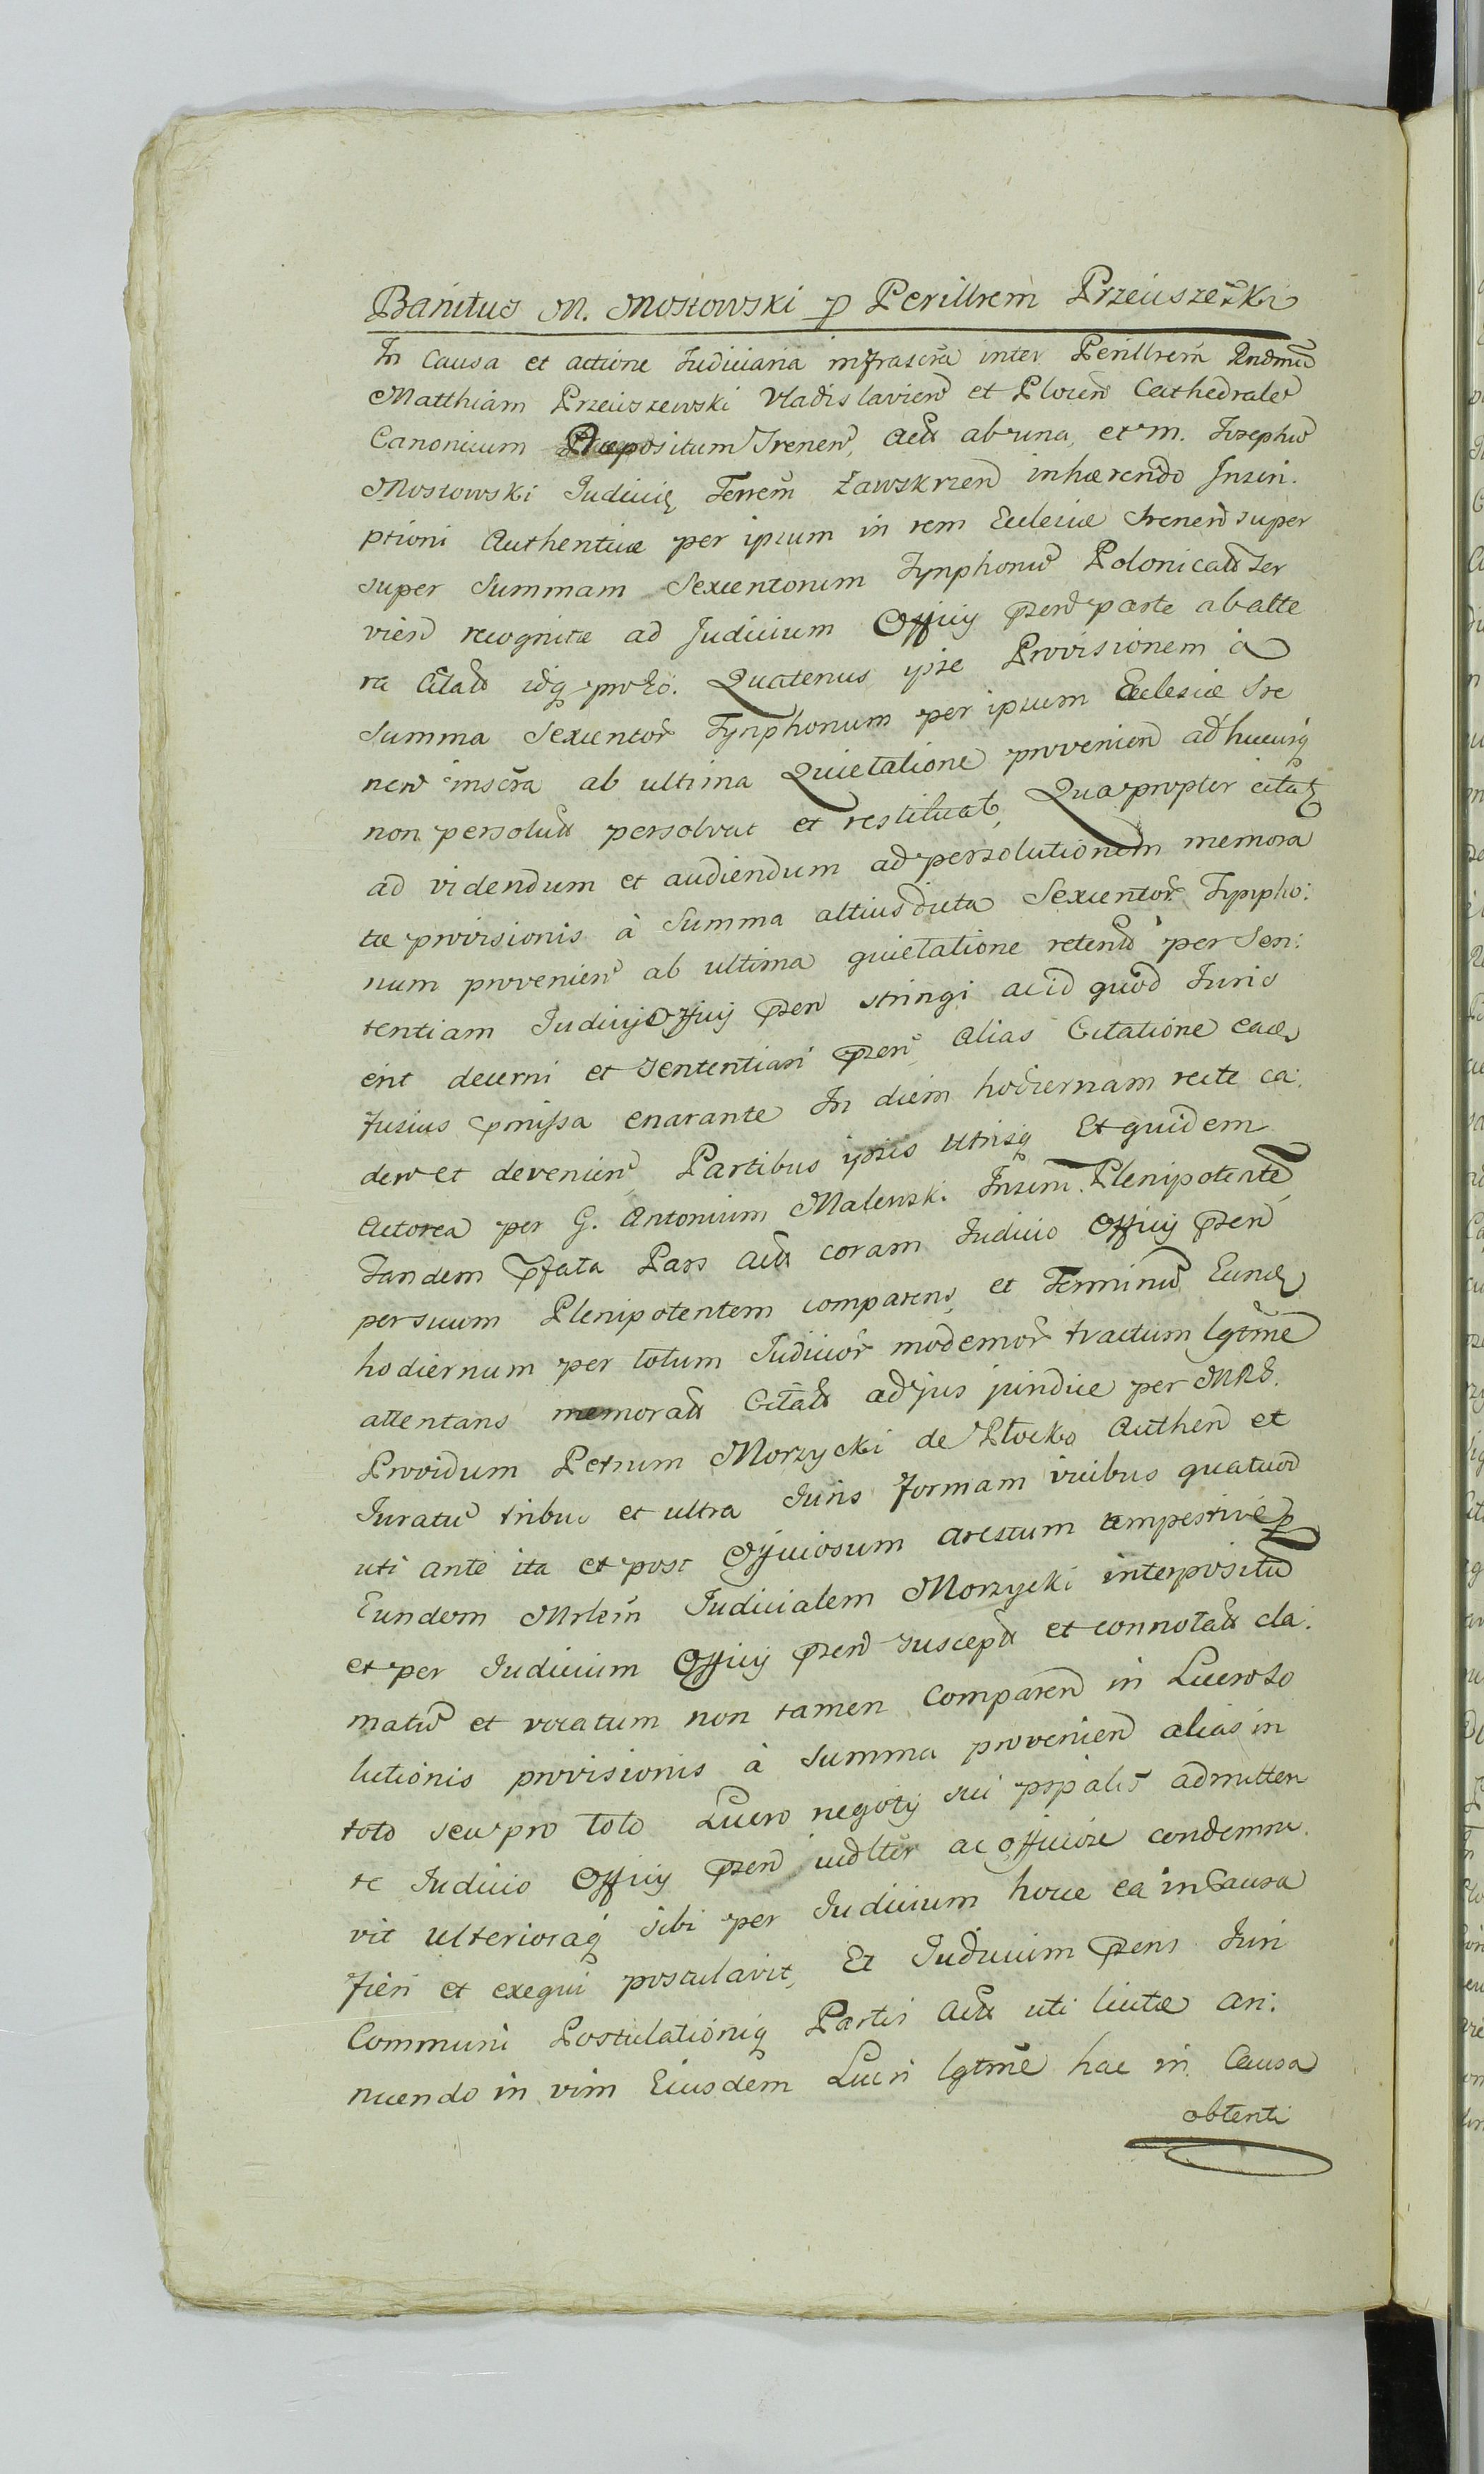 Banitus M. Mostowski p Perillrem Przeciszewski
In Causa et actione Judiciaria infrascra inter Perillrem Rndmu
Matthiam Przeciszewski Vladislavien et Plocen Cathedrales
Canonicum Præpositum Srenen, Acta ab una, et M. Josephu
Mostowski Judicis Terrem Zawskrzen inhærendo Inscri:
ptioni Authenticæ per ipsum in rem Ecclesiæ Srenen super
super Summam Sexcentorum Tynphonu Polonicalu Ser
vien recognitæ ad Judicium Officij pzen parte ab alte
ra Citata idq pro eo. Quatenus ipse Provisionem a
Summa Sexcentor Tynphonum per ipsum Ecclesiæ Sre
nen inscra ab ultima Quietatione provenien ad hucusq
non persoluta persolvat et restituat, Qua propter citat
ad videndum et audiendum ad persolutionem memora
tæ provisionis à Summa altius dicta Sexcentor Tynpho:
num provenien ab ultima quietatione retenta per Sen:
tentiam Judicij Officij pzen stringi ac id quod Juris
erit decerni et sententiari pzen, alias Citatione ea
fusius pmissa enarante In diem hodiernam recte ca:
den et devenien, Partibus ipsis utrisq Et quidem
Actorea per G. Antonium Malewski Insem. Plenipotente,
Tandem pfata Pars Acta coram Judicio Officij pzen
per suum Plenipotentem comparens, et Terminu Eund
hodiernum per totum Judicior modernor tractum lgtme
attentans memorata Citata ad jus juridice per MRS.
Providum Petrum Morzycki de Płocko Authen et
Juratu tribus et ultra Juris formam vicibus quatuor
uti ante ita et post Officiosum arestum tempestive p
Eundem Mrlem Judicialem Morzycki interpositu
et per Judicium Officij pzen suscepta et connotata cla:
matu et vocatum non tamen Comparen in Lucro So
lutionis provisionis à Summa provenien alias in
toto seu pro toto Lucro negotij sui ppalis admitten
te Judicio Officij pzen judlter ac officiose condemna
vit ulterioraq sibi per Judicium hocce ea in Causa
fieri et exequi postulavit, Et Judicium pzens Juri
Communi Postulationiq Partis Acta uti licitæ an:
nuendo in vim Eiusdem Lucri lgtme hac in Causa
obtenti